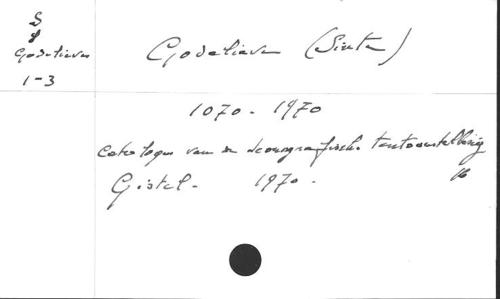 S
Godelieva
1-3
Godelieva (Sinte)
1070 - 1970
Catalogus van de iconografische tentoonstelling
Gistel - 1970.